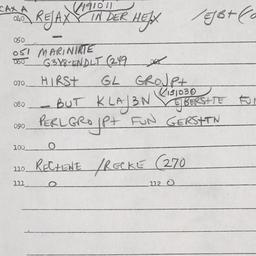 CAX A (191011
040 REJAX IN DER HEJX /EJB+(
050
051 MARINIRTE
060 G3Y8-ENDLT (249
070 HIRST GL GROJP+
080 - BUT KLAJ3N (151030 EJBERSTE FUN
090 PERLGROJP+ FUN GERSTTN
100 O
110 RECHENE /RECKE (270
111 O 112 O